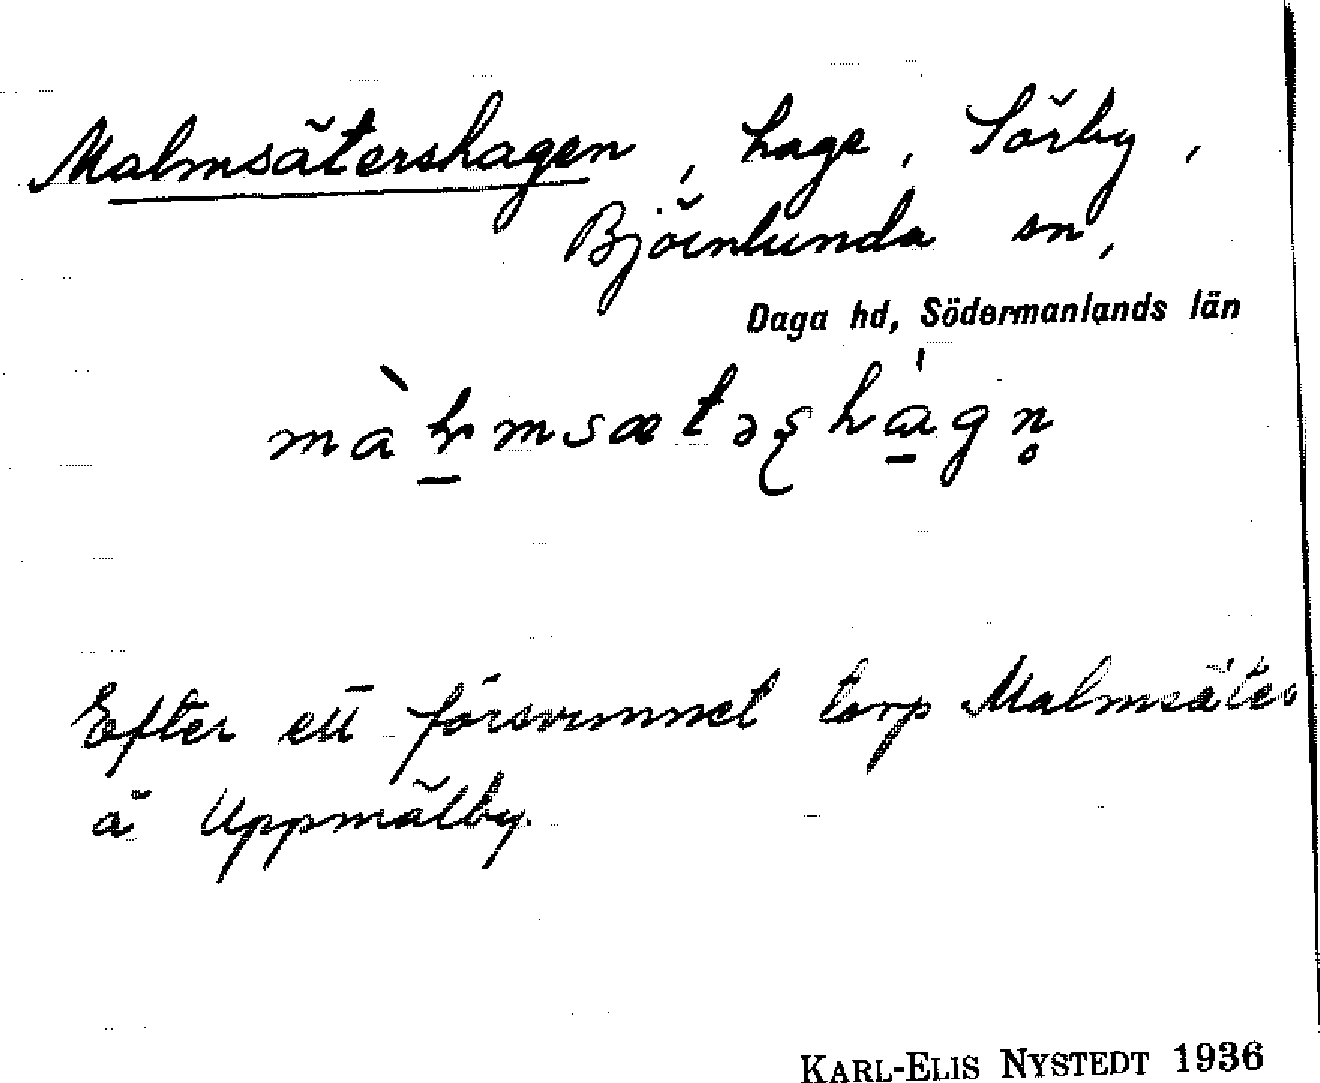 Malmsätershagen, hage, Sörby,
Björnlunda sn,
Daga hd, Södermanlands län
Efter ett försvunnet torp Malmsäter
å Uppmälby.
KARL-ELIS NYSTEDT 1936